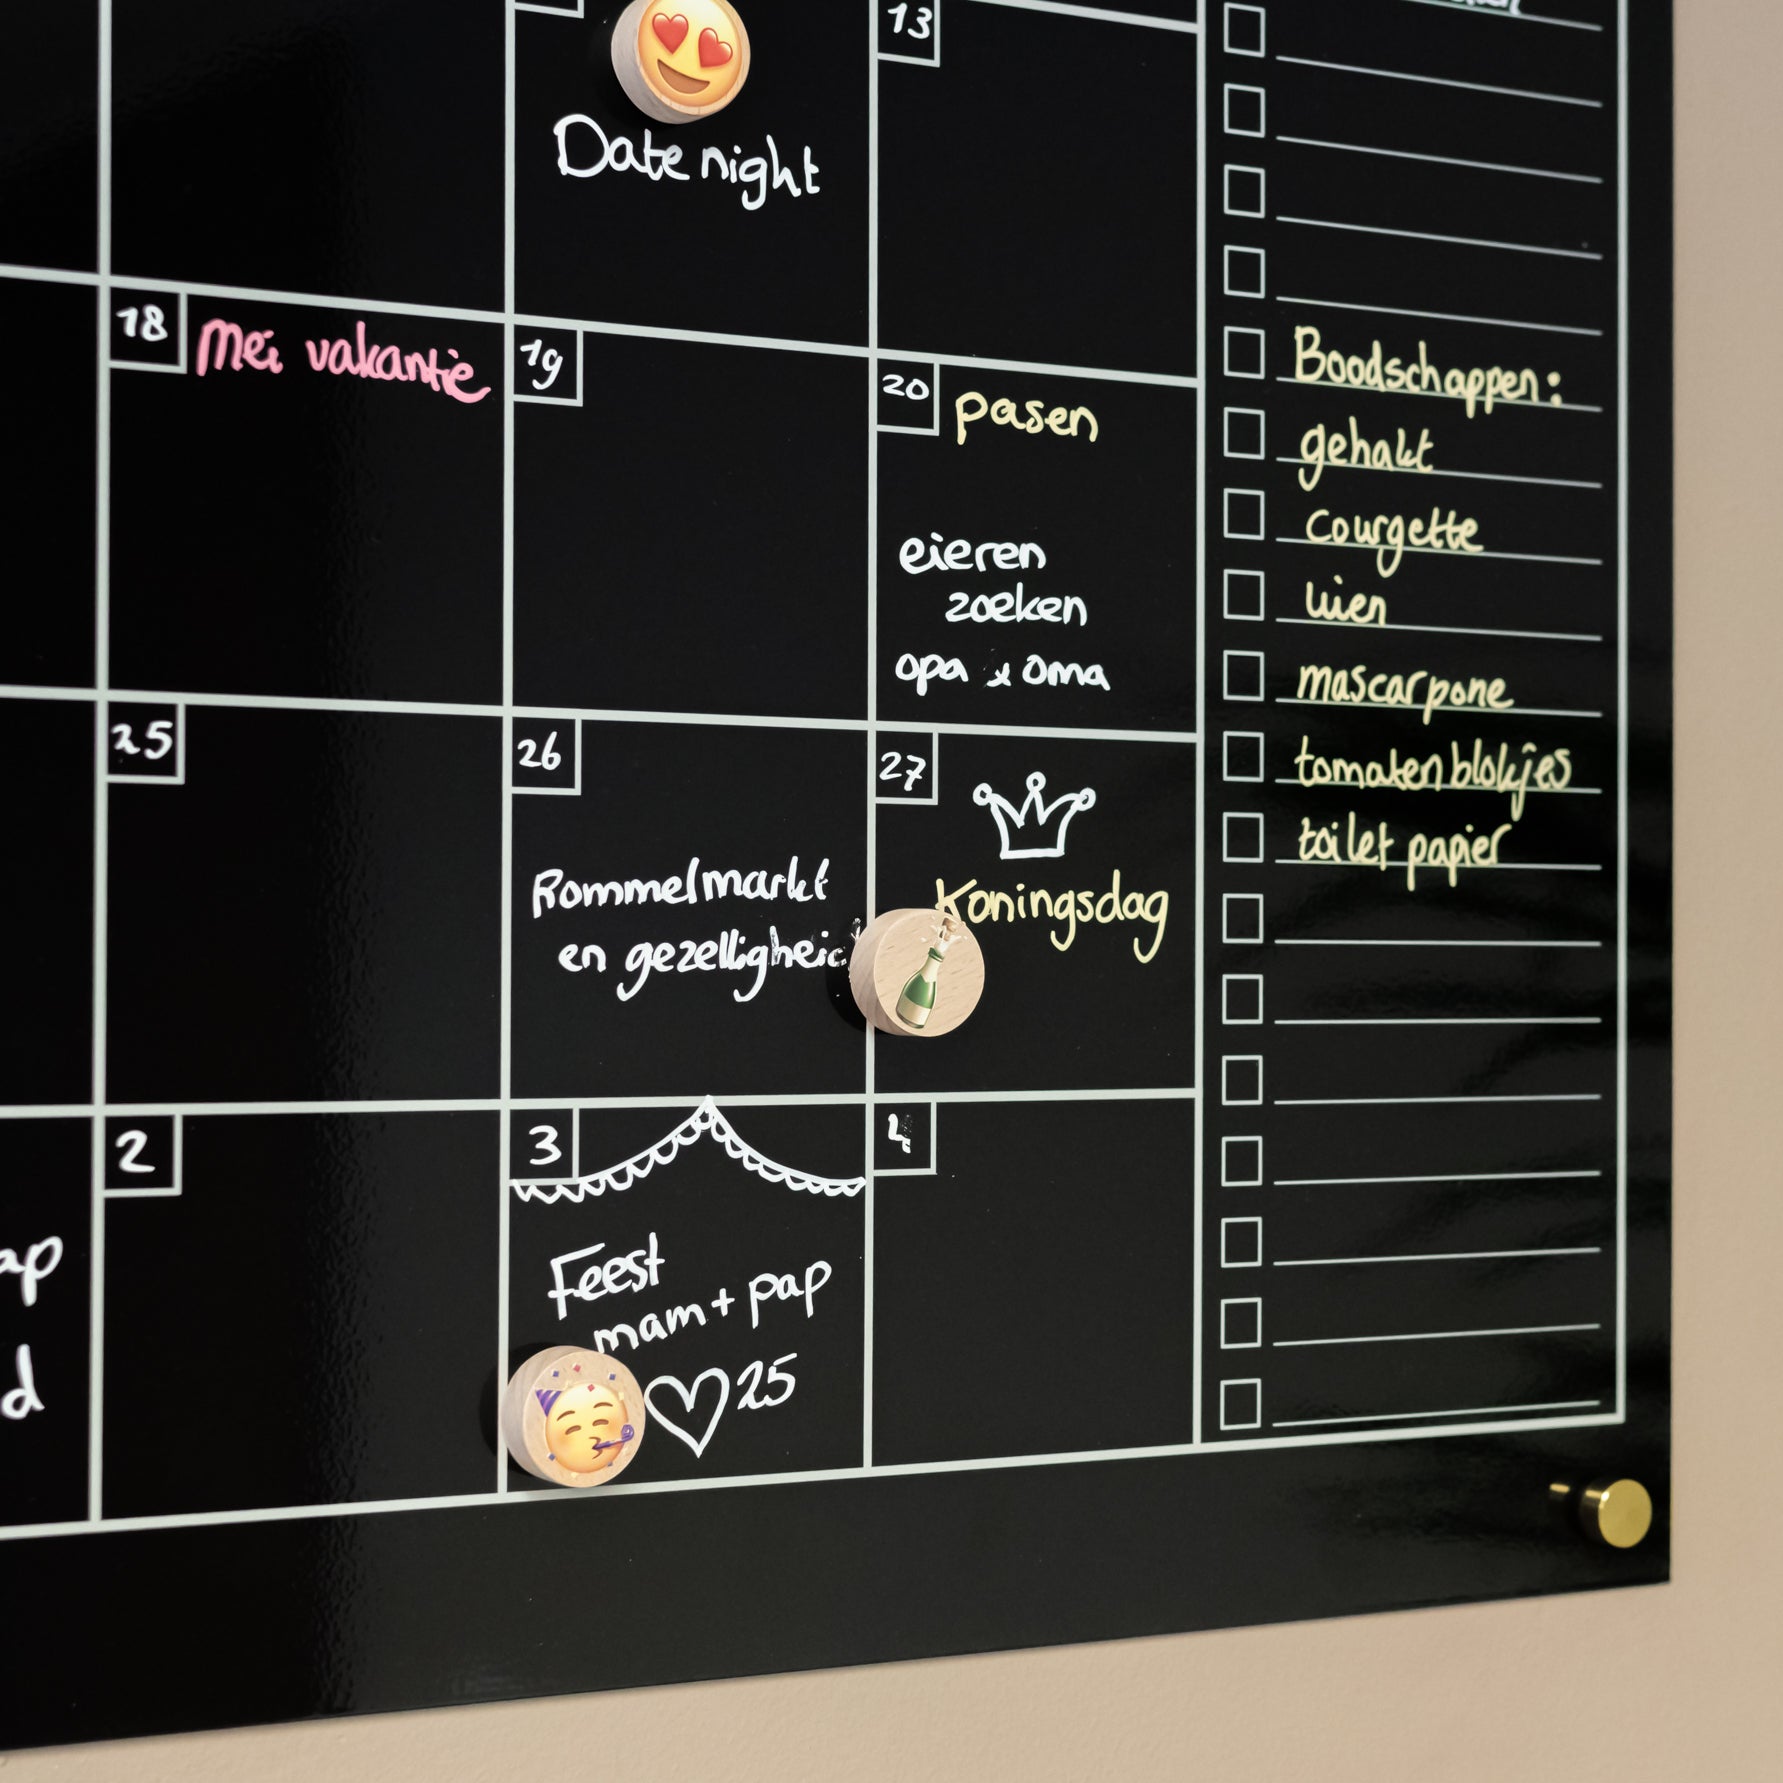 13
Date night
18
Mei vakantie
19
20
pasen
eieren
zoeken
opa & oma
25
26
Rommelmarkt
en gezelligheid
27
Koningsdag
2
3
Feest
mam + pap
25
4
ap
d
Boodschappen:
gehakt
Courgette
uien
mascarpone
tomatenblokjes
toilet papier